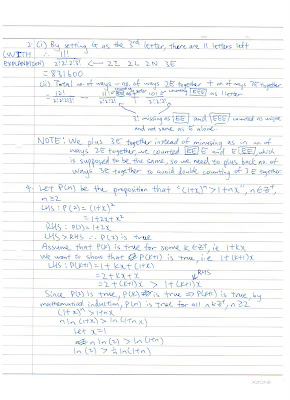 2 (i) By setting G as the 2nd letter, there are 11 letters left
(WITH EXPLANATION) ∴ 11! / 2!2!2!3! ← 2I 2L 2N 3E
= 831600
(ii) Total no. of ways - no. of ways 2E together + no. of ways 3E together
12! / 2!2!2!3! - 11! / 2!2!2! + 10! / 2!2!2!
counting EEE as 1 letter
3! missing as EE and EEE counted as unique and not same as E alone.
NOTE: We plus 3E together instead of minusing as in no. of
ways 2E together, we counted EE E and E EE, which
is supposed to be the same, so we need to plus back no. of
ways 3E together to avoid double counting of 3E together
4. Let P(n) be the proposition that "(1+x)ⁿ > 1+nx", n∈Z⁺,
n≥2
LHS: P(2) = (1+x)²
= 1+2x+x²
RHS: P(2) = 1+2x
LHS > RHS ∴ P(2) is true
Assume that P(k) is true for some k∈Z⁺, ie 1+kx
We want to show that P(k+1) is true, i.e 1+(k+1)x
LHS: P(k+1) = 1+kx+(1+x)
= 2+kx+x
= 2+(k+1)x > 1+(k+1)x
RHS
Since P(2) is true, P(k) is true ⇒ P(k+1) is true, by
mathematical induction, P(n) is true for all n∈Z⁺, n≥2
(1+x)ⁿ > 1+nx
n ln(1+x) > ln(1+nx)
Let x=1
n ln(2) > ln(1+n)
ln(2) > 1/n ln(1+n)